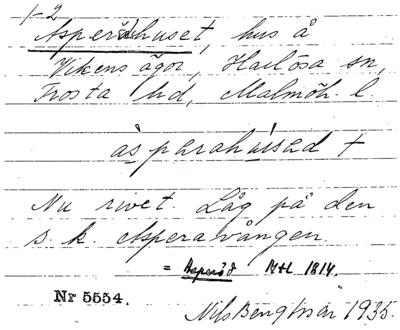 1-2
Asperöhuset, hus å
Vikens ägor, Harlösa sn,
Frosta hd, Malmöh. l
àsparahúsad +
Nu rivet. Låg på den
s. k. Asperavången.
= Asperöd M+L 1814.
Nr 5554.
Nils Bengtsson 1935.